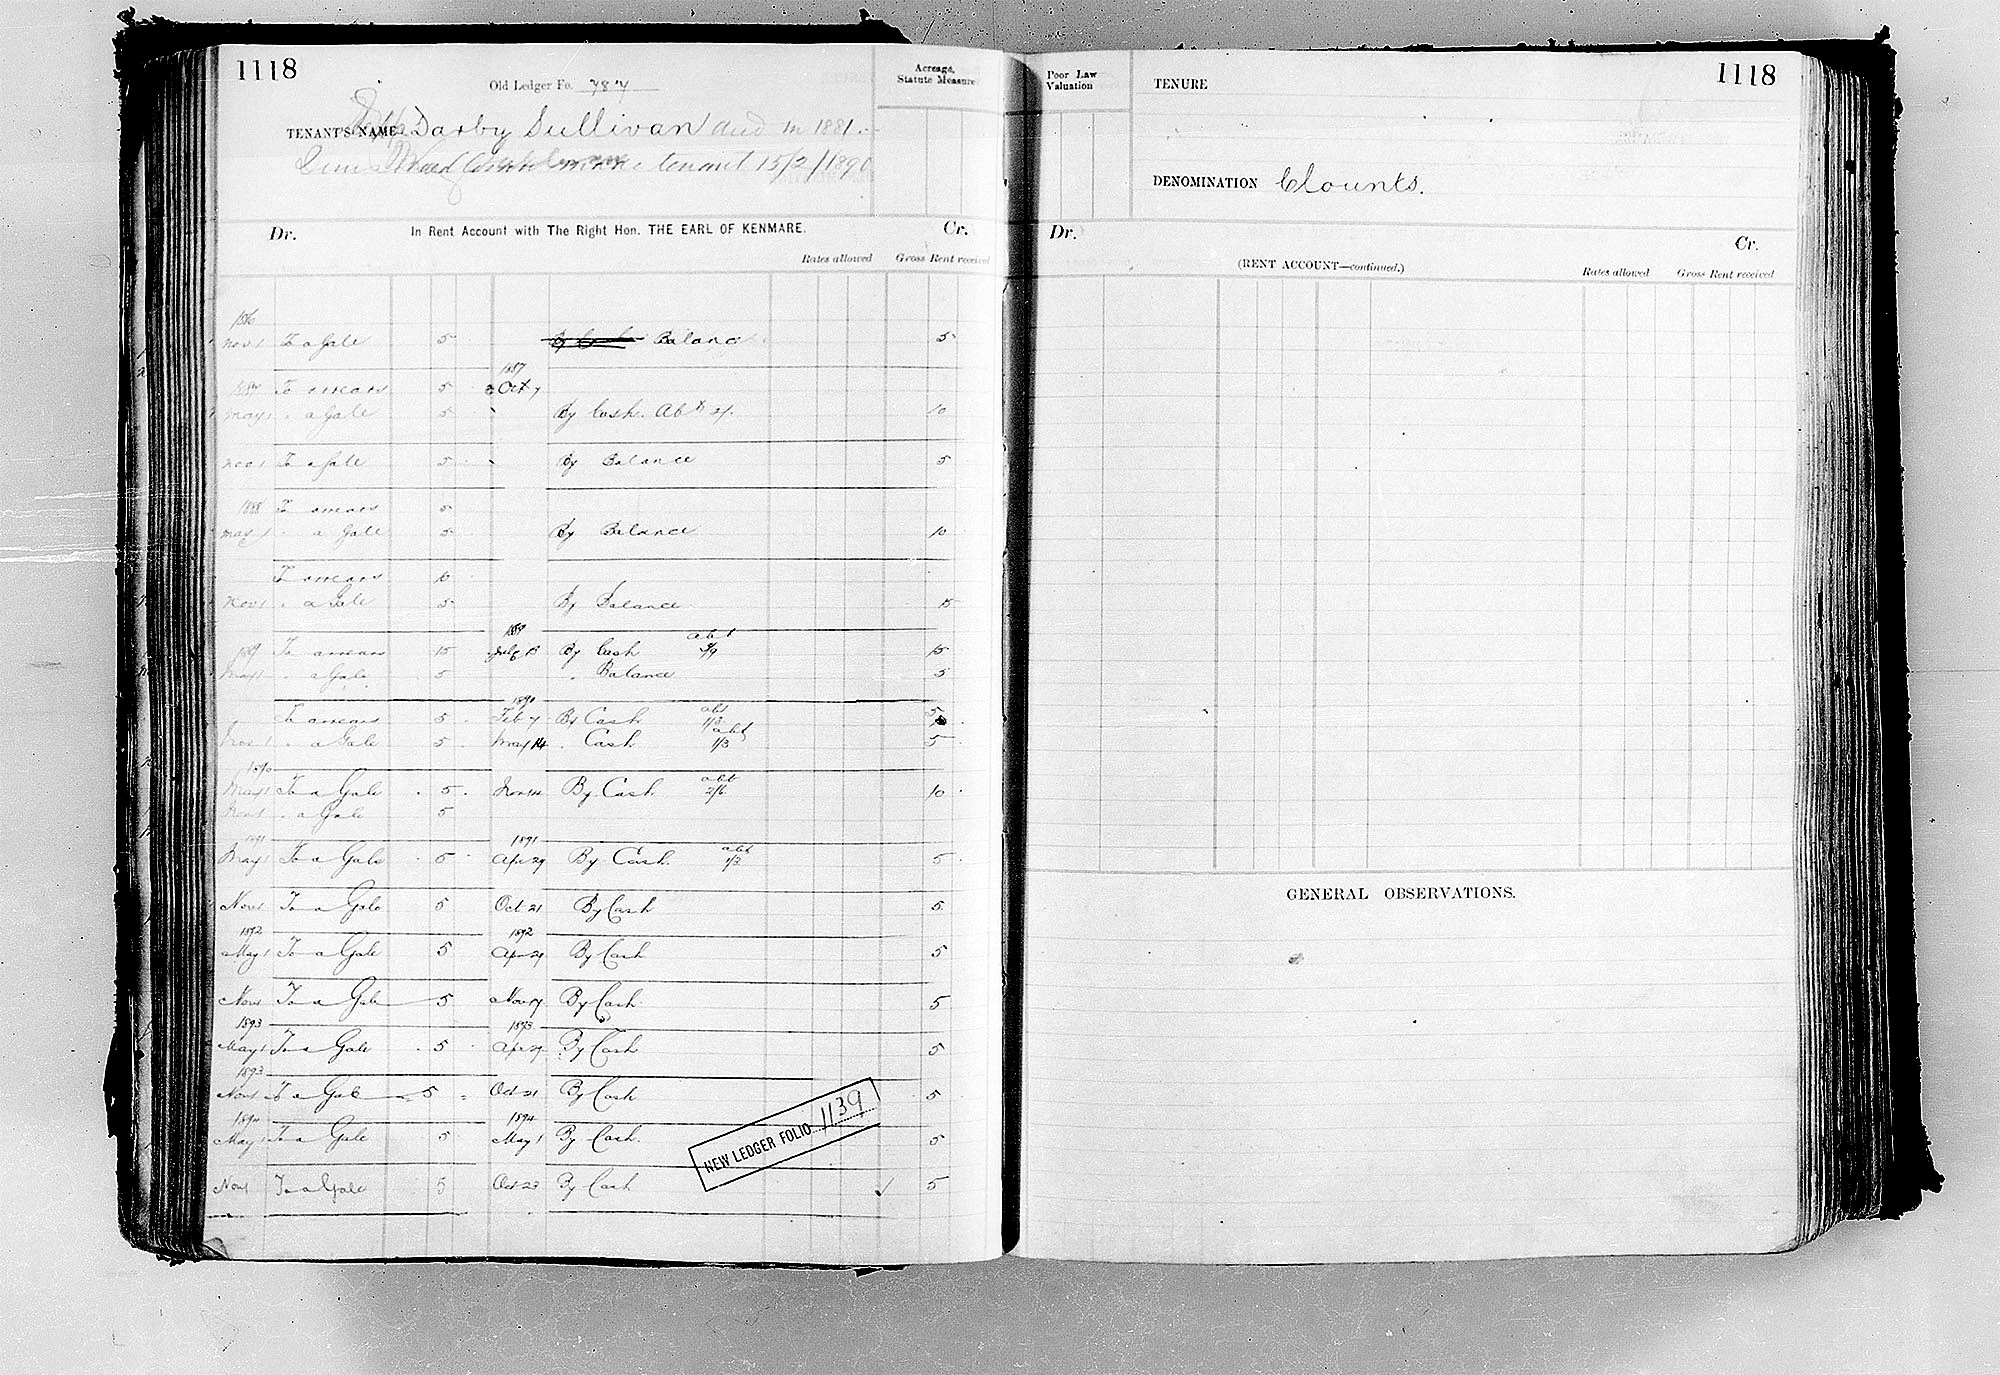 1118
Old Ledger Fo. 787
Acreage, Statute Measure
TENANT'S NAME Darby Sullivan died in 1881.
tenant 15/2/1890
Dr. In Rent Account with The Right Hon. THE EARL OF KENMARE. Cr.
Rates allowed Gross Rent received
1886
Nov 1 To a Gale 5 Balance 5
1887
1887 To arrears 5 Oct 7
May 1 " a Gale 5 By Cash. Abt 2/. 10
Nov 1 To a Gale 5 By Balance 5
1888 To arrears 5
May 1 " a Gale 5 By Balance 10
To arrears 10
Nov 1 " a Gale 5 By Balance 15
1889 abt
1889 To arrears 15 July 13 By Cash 3/9 15
May 1 " a Gale 5 " Balance 5
1890 abt
To arrears 5 Feb 7 By Cash 1/3 5
abt
Nov 1 " a Gale 5 May 14 " Cash 1/3 5
1890 abt
May 1 To a Gale 5 Nov 14 By Cash 2/6 10
Nov 1 " a Gale 5
1891 1891 abt
May 1 To a Gale 5 Apr 29 By Cash 1/3 5
Nov 1 To a Gale 5 Oct 21 By Cash 5
1892 1892
May 1 To a Gale 5 Apr 29 By Cash 5
Nov 1 To a Gale 5 Nov 17 By Cash 5
1893 1893
May 1 To a Gale 5 Apr 29 By Cash 5
1893
Nov 1 To a Gale 5 Oct 21 By Cash 5
1894 1894
May 1 To a Gale 5 May 1 By Cash 5
NEW LEDGER FOLIO 1139
Nov 1 To a Gale 5 Oct 23 By Cash ✓ 5
1118
Poor Law Valuation
TENURE
DENOMINATION Clounts.
Dr. Cr.
(RENT ACCOUNT—continued.)
Rates allowed Gross Rent received
GENERAL OBSERVATIONS.